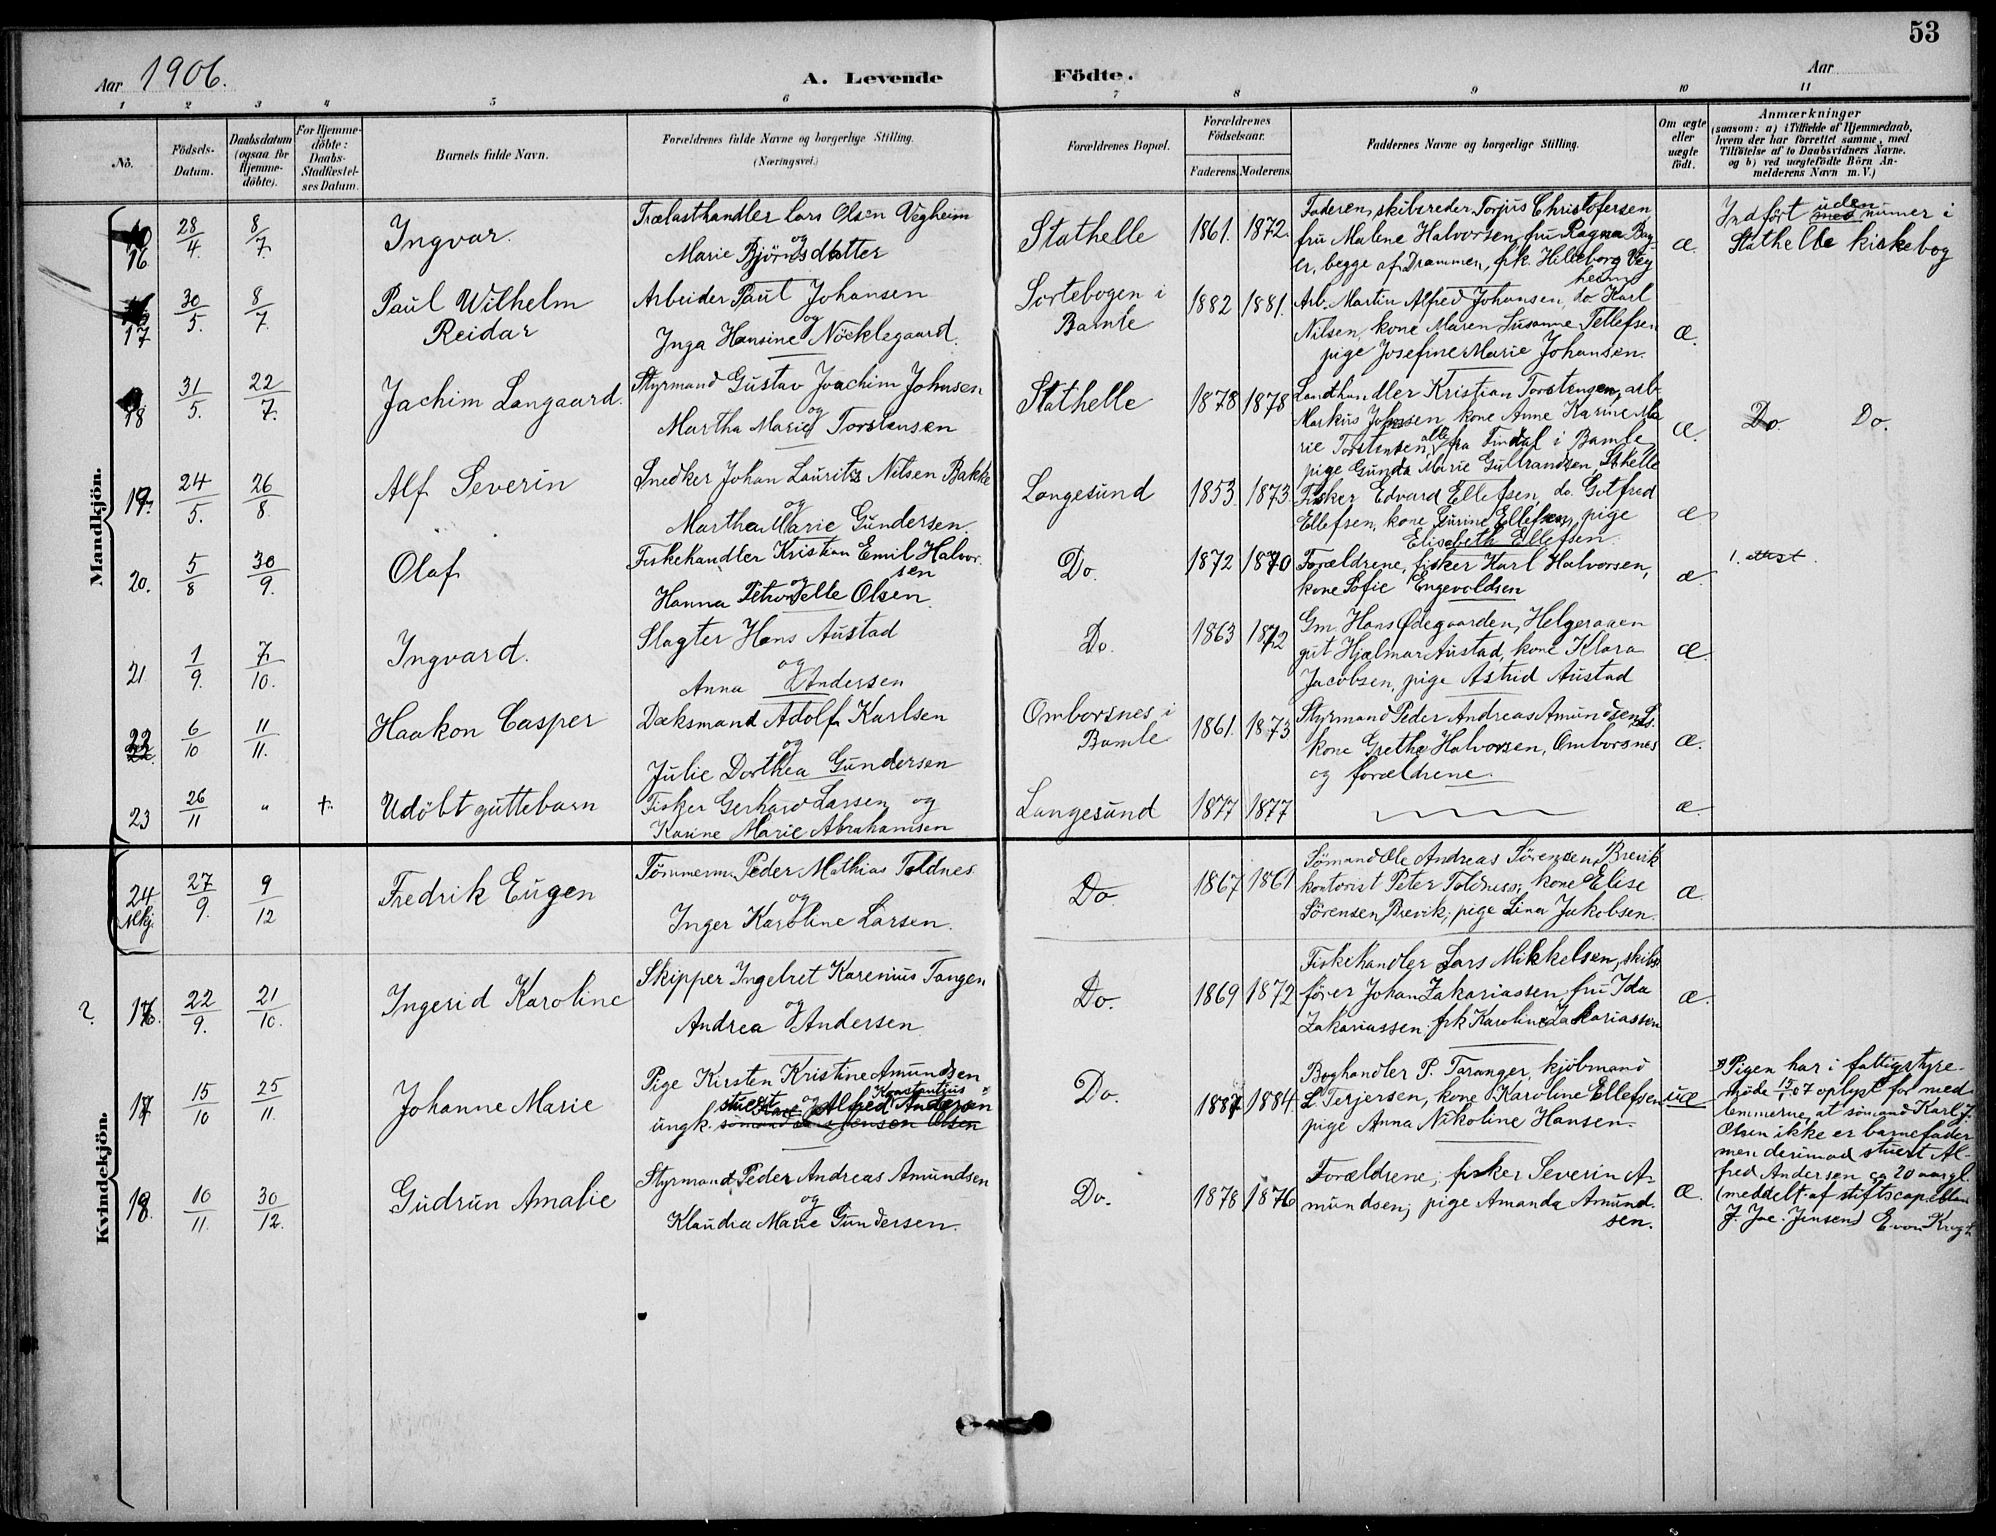 53
Aar 1906.
A. Levende Födte.
Aar
1 2 3 4 5 6 7 8 9 10 11
No.
Födsels-
Datum.
Daabsdatum
(ogsaa for
Hjemme-
döbte).
For Hjemme-
döbte:
Daabs-
Stadfæstel-
ses Datum.
Barnets fulde Navn.
Forældrenes fulde Navne og borgerlige Stilling.
(Næringsvei.)
Forældrenes Bopæl.
Forældrenes
Födselsaar.
Faderens. Moderens.
Faddernes Navne og borgerlige Stilling.
Om ægte
eller
uægte
födt.
Anmærkninger
(saasom: a) i Tilfælde af Hjemmedaab,
hvem der har forrettet samme, med
Tilföielse af to Daabsvidners Navne.
og b) ved uægtefödte Börn An-
melderens Navn m. V.)
Mandkjön.
16 28/4. 8/7. Ingvar.
Trælasthandler Lars Olsen Vegheim
og
Marie Björnsdatter
Stathelle 1861. 1872.
Faderen, skibsreder Torjus Christofersen,
fru Malene Halvorsen, fru Ragna Bay-
er, begge af Drammen, frk. Hilleborg Veg
heim
æ.
Indført uden med numer i
Stathelle kirkebog
17 30/5. 8/7. Paul Wilhelm
Reidar
Arbeider Paul Johansen
og
Inga Hansine Nöcklegaard.
Sortebogen i
Bamle
1882 1881.
Arb. Martin Alfred Johansen, do Karl
Nilsen, kone Maren Susanne Tellefsen
pige Josefine Marie Johansen.
æ.
18 31/5. 22/7. Jachim Langaard.
Styrmand Gustav Joachim Johnsen
og
Martha Marie Torstensen
Stathelle 1878 1878
Landhandler Kristian Torstensen, arb.
Markus Johnsen, kone Anne Karine Ma
rie Torstensen, alle fra Findal i Bamle
pige Gunda Marie Gulbrandsen, Sthelle
æ.
Do Do.
19. 24/5. 26/8. Alf Severin
Snedker Johan Lauritz Nilsen Bakke
og
Martha Marie Gundersen
Langesund 1853 1873.
Fisker Edvard Ellefsen, do. Gotfred
Ellefsen, kone Gurine Ellefsen, pige
Elisabeth Ellefsen.
æ
20. 5/8 30/9. Olaf
Fiskehandler Kristian Emil Halvor-
sen
og
Hanna Petronelle Olsen
Do. 1872 1870
Forældrene, fisker Karl Halvorsen,
kone Sofie Engevoldsen
æ.
1. attest.
21 1/9. 7/10. Ingvard.
Slagter Hans Austad
og
Anna Andersen
Do. 1863 1872
Gm. Hans Ødegaarden, Helgeraaen
gut Hjalmar Austad, kone Klara
Jacobsen, pige Astrid Austad
æ.
22 6/10 11/11. Haakon Casper
Dæksmand Adolf Karlsen
og
Julie Dorthea Gundersen
Omborsnes i
Bamle
1861. 1873
Styrmand Peder Andreas Amundsen, Ls.
kone Grethe Halvorsen, Omborsnes
og forældrene.
æ.
23 26/11 " †. Udöbt guttebarn
Fisker Gerhard Larsen og
Karine Marie Abrahamsen
Langesund 1877 1877
æ.
24
Mkj.
27/9. 9/12 Fredrik Eugen
Tömmerm. Peder Mathias Toldnes
og
Inger Karoline Larsen.
Do. 1867 1861
Sömand Ole Andreas Sörensen, Brevik
kontorist Peter Toldnes; kone Elise
Sörensen, Brevik; pige Lina Jakobsen.
æ.
Kvindekjön.
? 16. 22/9. 21/10. Ingerid Karoline
Skipper Ingebret Karenius Tangen
og
Andrea Andersen
Do. 1869 1872
Fiskehandler Lars Mikkelsen, skibs-
förer Johan Zakariassen, fru Ida
Zakariassen, frk Karoline Zakariassen
æ.
17 15/10 25/11. Johanne Marie
Pige Kirsten Kristine Amundsen
og
stuert Alfred Konstantius Andersen
ungk. sömand Karl Jensen Olsen
Do. 1887 1884
Boghandler P. Taranger, kjöbmand
L Terjersen, kone Karoline Ellefsen
pige Anna Nikoline Hansen.
uæ
Pigen har i fattigstyre-
möde 15/1.07 oplyst for med
lemmerne, at sömand Karl J.
Olsen ikke er barnefader
men derimod stuert Al-
fred Andersen ca 20 aar gl.
(meddelt af stiftscapellan
J. Jac. Jensen) E von Krogh
18. 10/11. 30/12. Gudrun Amalie
Styrmand Peder Andreas Amundsen
og
Klaudia Marie Gundersen.
Do. 1878 1876
Forældrene; fisker Severin A-
mundsen; pige Amanda Amund-
sen.
æ.